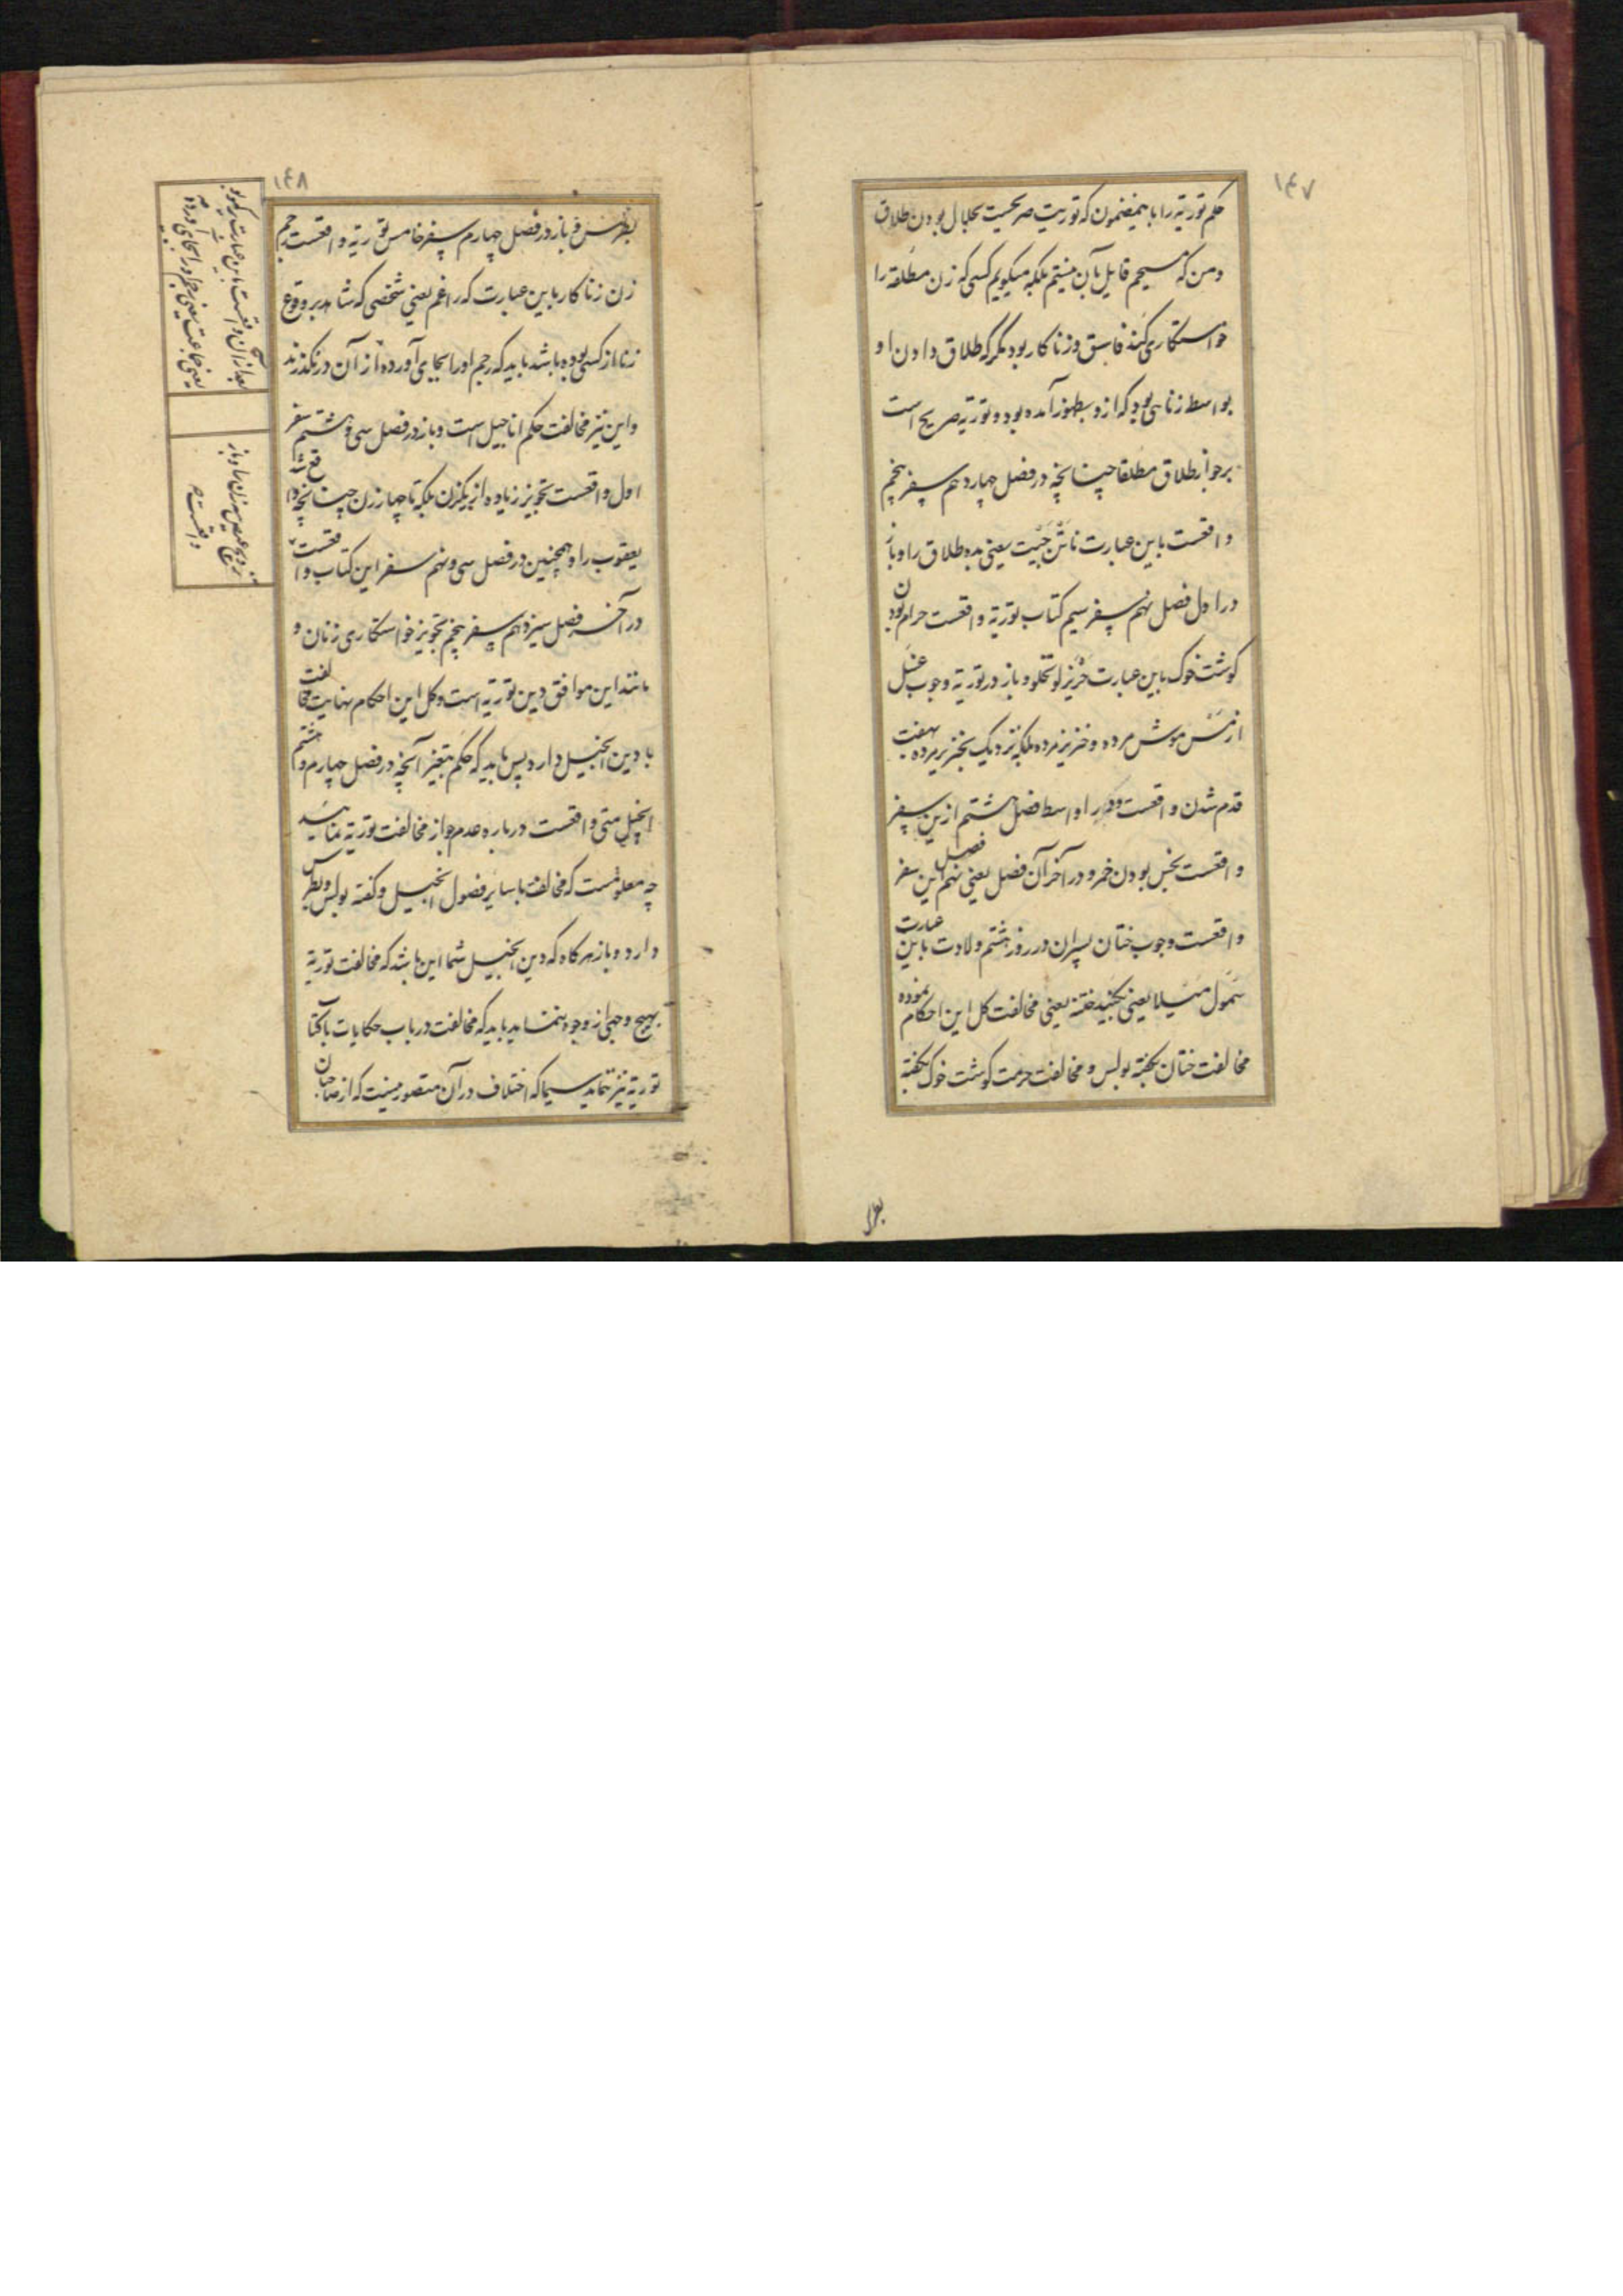 ۱۴۷
حکم توریة را باینمضمون که توریت صریحست بحلال بودن طلاق
و من که مسیحم قایل بآن نیستم بلکه میگویم کسی که زن مطلقه را
خواستکاری کند فاسق و زناکار بود مکر که طلاق دادن او
بواسط زنایی بود که از و بظهور آمده بود و توریة صریح است
بر جواز طلاق مطلقا چنانچه در فصل چهاردهم سفر پنجم
واقعست باین عبارت ناتن جیت یعنی بده طلاق را و باز
در اول فصل نهم سفر سیم کتاب توریة واقعست حرام بودن
کوشت خوک باین عبارت خزیر لو تخلو و باز در توریة وجوب غسل
از مس موش مرده و خنزیر مرده بلکه نزدیک بخنزیر مرده بهفت
قدم شدن واقعست و در اواسط فصل هشتم ازین سفر
واقعست نجس بودن خمر و در آخر آن فصل یعنی نهم این سفر
فصل
واقعست وجوب ختان پسران در روز هشتم ولادت باین عبارت
شمول میلا یعنی بکنید ختنه یعنی مخالفت کل این احکام نموده
مخالفت ختان بکفته بولس و مخالفت حرمت کوشت خوک بکفته
بطرس
۱۴۸
بطرس و باز در فصل چهارم سفر خامس توریة واقعست رجم
زن زناکار باین عبارت که راغم یعنی شخصی که شاهد بر وقوع
زنا از کسی بوده باشد باید که رجم او را بجای آورده از آن در نکذرند
و این نیز مخالفت حکم اناجیل است و باز در فصل سی و هشتم سفر
اول واقعست تجویز زیاده از یکزن بلکه تا چهار زن چنانچه واقع شد
یعقوب را و همچنین در فصل سی و نهم سفر این کتاب واقعست
در آخر فصل سیزدهم سفر پنجم تجویز خواستکاری زنان و
مانند این موافق دین توریة است و کل این احکام نهایت مخالفت
با دین انجیل دارد پس باید که حکم بتغیر آنچه در فصل چهارم و هشتم
انجیل متی واقعست درباره عدم جواز مخالفت توریة نمائید
چه معلومست که مخالفت با سایر فصول انجیل و کفته بولس و بطرس
دارد و باز هرکاه که دین انجیل شما این باشد که مخالفت توریة
بهیچ وجهی از وجوه ننماید باید که مخالفت در باب حکایات با کتاب
توریة نیز ننماید سیما که اختلاف در آن متصور نیست که از صاحبان
بعد از آن واقعست باین عبارت
یعنی جماعت یعنی رجم او را بجای آورده